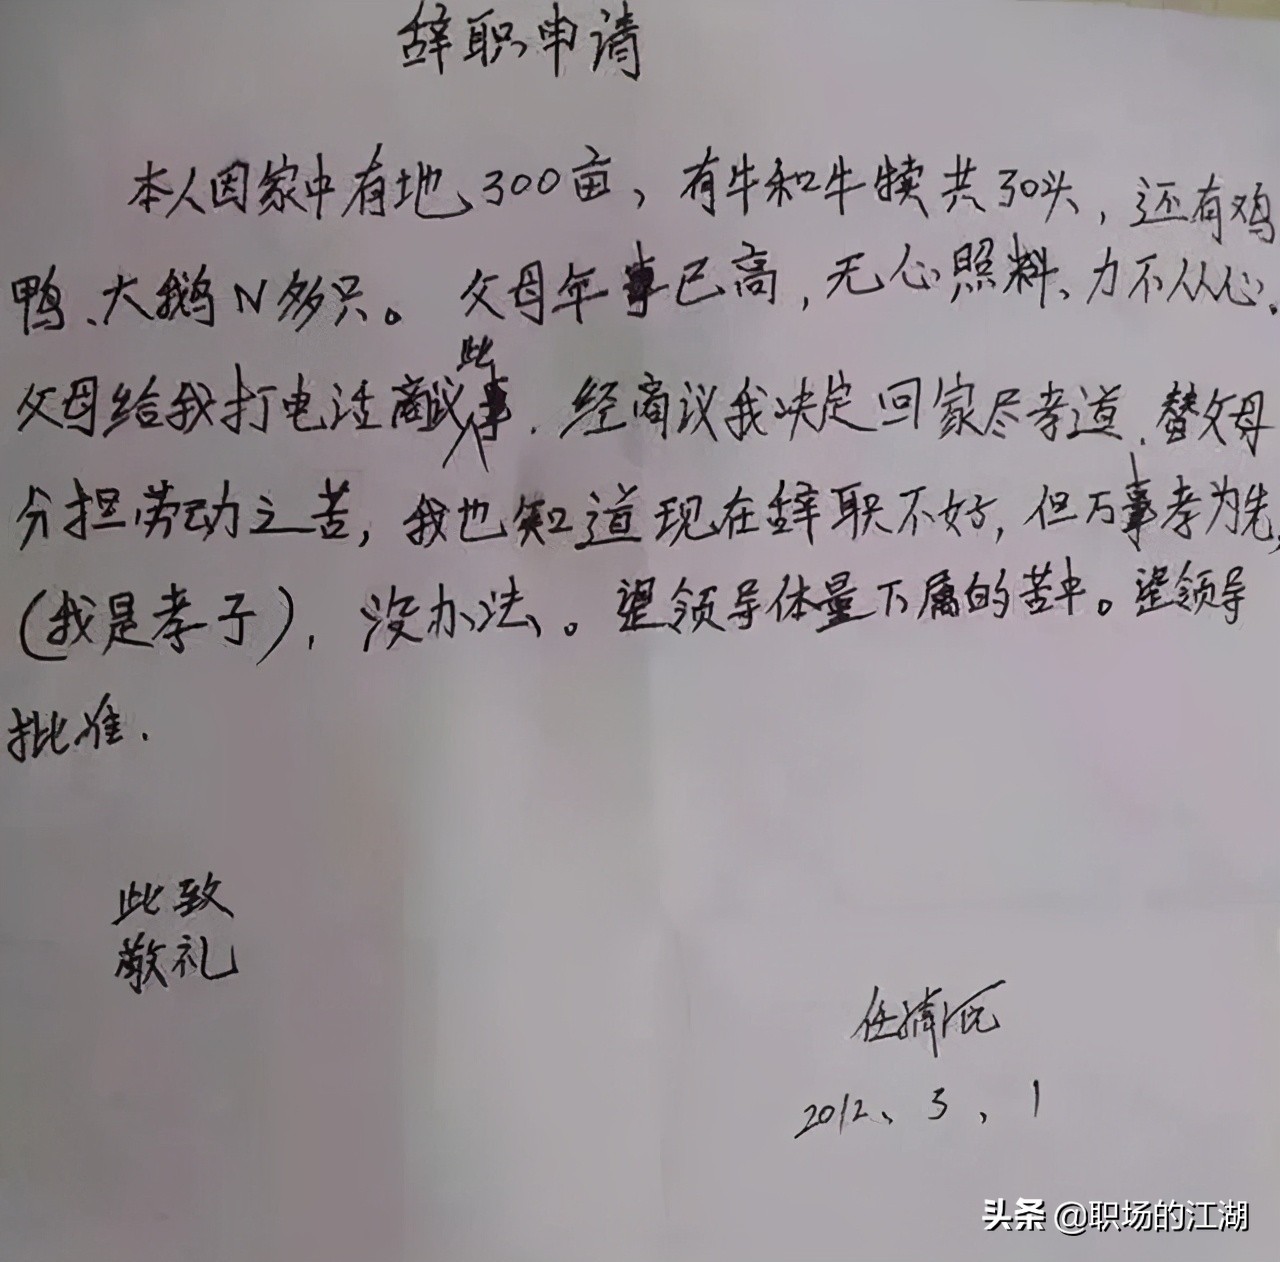 辞职申请
本人因家中有地300亩，有牛和牛犊共30头，还有鸡
鸭、大鹅N多只。父母年事已高，无心照料、力不从心。
父母给我打电话商议此事．经商议我决定回家尽孝道，替父母
分担劳动之苦，我也知道现在辞职不好，但万事孝为先，
（我是孝子），没办法。望领导体量下属的苦中。望领导
批准．
此致
敬礼
2012、3、1
头条 @职场的江湖